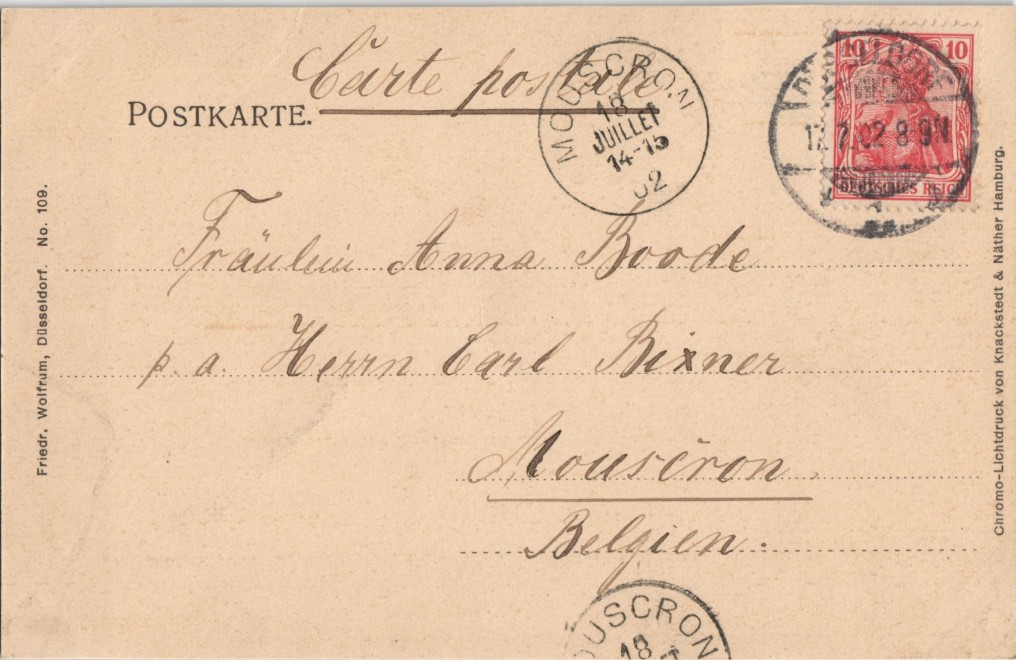 Carte postale
POSTKARTE.
MOUSCRON
18
JUILLET
14-15
02
10 10
17.7.02 8-9N
DEUTSCHES REICH
Friedr. Wolfrum, Düsseldorf. No. 109.
Fräulein Anna Boode
p. a. Herrn Carl Bixner
Mouscron.
Belgien.
Chromo-Lichtdruck von Knackstedt & Näther Hamburg.
OUSCRON
18